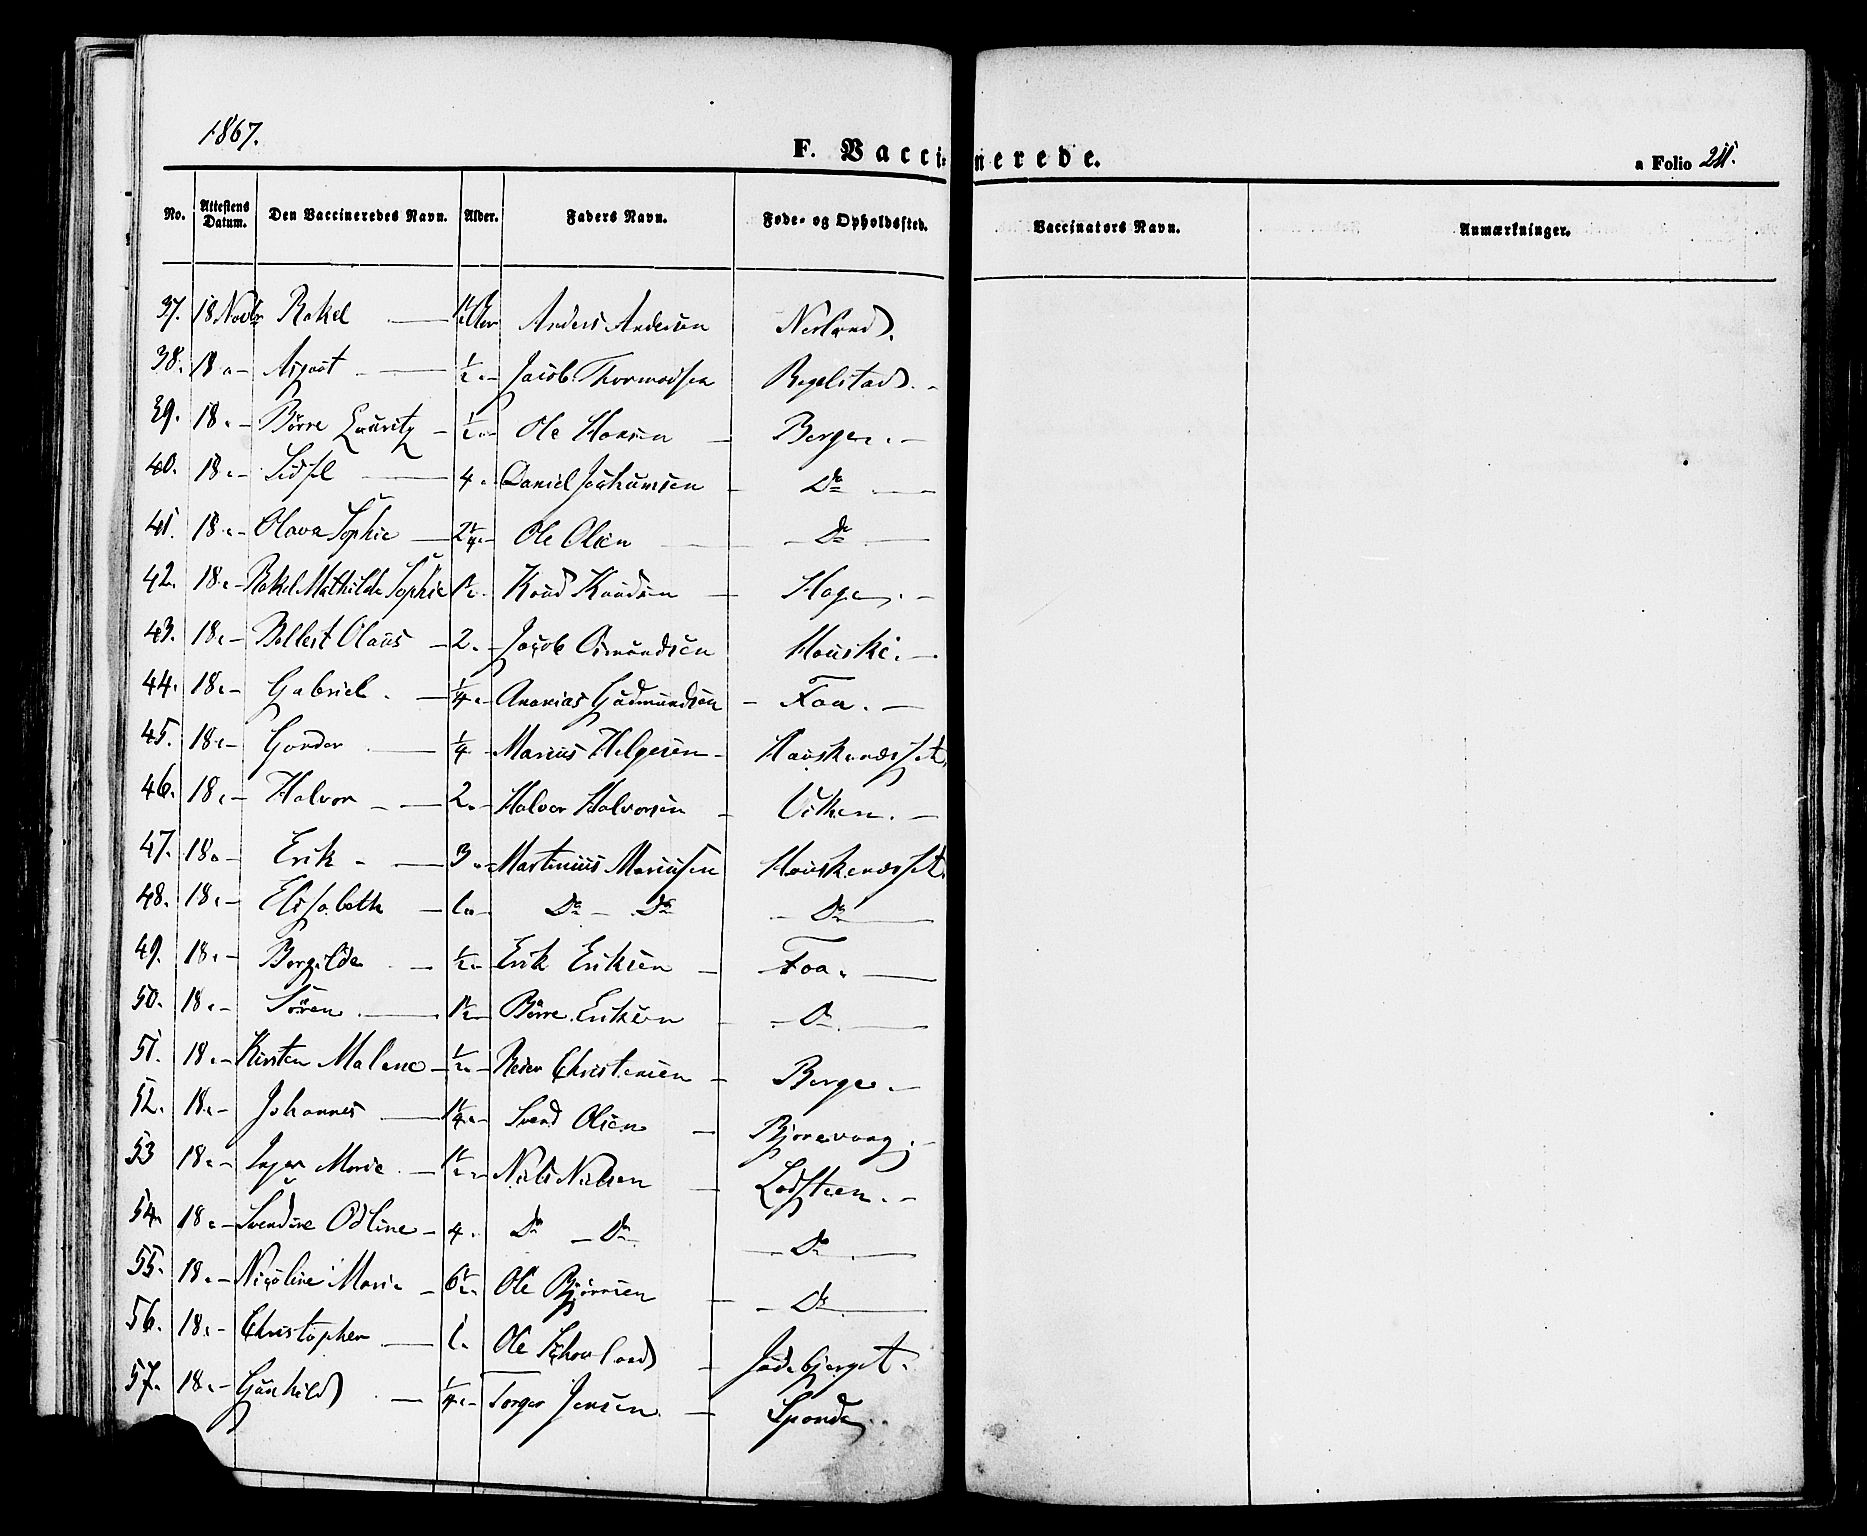 1867.
F. Vaccinerede.
a Folio 211.
No. Attestens Datum. Den Vaccineredes Navn. Alder. Faders Navn. Føde- og Opholdssted. Vaccinators Navn. Anmærkninger.
37. 18 Novbr Rakel — Anders Andersen Nesland.
38. 18 " - — ½ " - Jacob Thormodsen
39. 18 " - Börre Lauritz - ½ " - Ole Hansen - Berge. -
40. 18 " - Sidsel — 4 " Daniel Joachumsen - Do —
41. 18 " - Olava Sophie — 2¼ " - Ole Olsen — Do —
42. 18 " - Rakel Mathilde Sophie 1½ " Knud Knudsen - Hage. -
43. 18 " - Bellest Olaus - 2 " - Jacob Osmundsen Hauske. -
44. 18 " - Gabriel. - ¼ " - Ananias Gudmundsen - Foa. -
45. 18 " - — ¼ - Marius Helgesen - Hauskenæsset
46. 18 " - Halvor - — 2 " - Halvor Halvorsen - Viken. -
47. 18 " - Erik - — 3 " - Martinius Mariusen Hauskenæsset.
48. 18 " - Elisabeth - 1 " - Do - Do - Do —
49. 18 " - Bergilde - ½ " - Erik Eriksen - Foa. —
50. 18 " - Sören. — 1½ - Börre Eriksen - Do —
51. 18 " - Kirsten Malene - ½ " - Peder Christensen - Berge. -
52. 18 " - Johannes — 1¼ " - Svend Olsen - Bjorevaag. -
53 18 " - Inger Marie. - 1½ " - Niels Nielsen - Ladsteen. -
54. 18 " - Svendine Odline - 4 " Do - Do — Do —
55. 18 " - Nicoline Marie - 6½ " Ole Bjørnsen - - Do —
56. 18 " - Christopher — 1 " Ole -
57. 18 " - Gunhild. - ¼ " - Torger Jensen. -